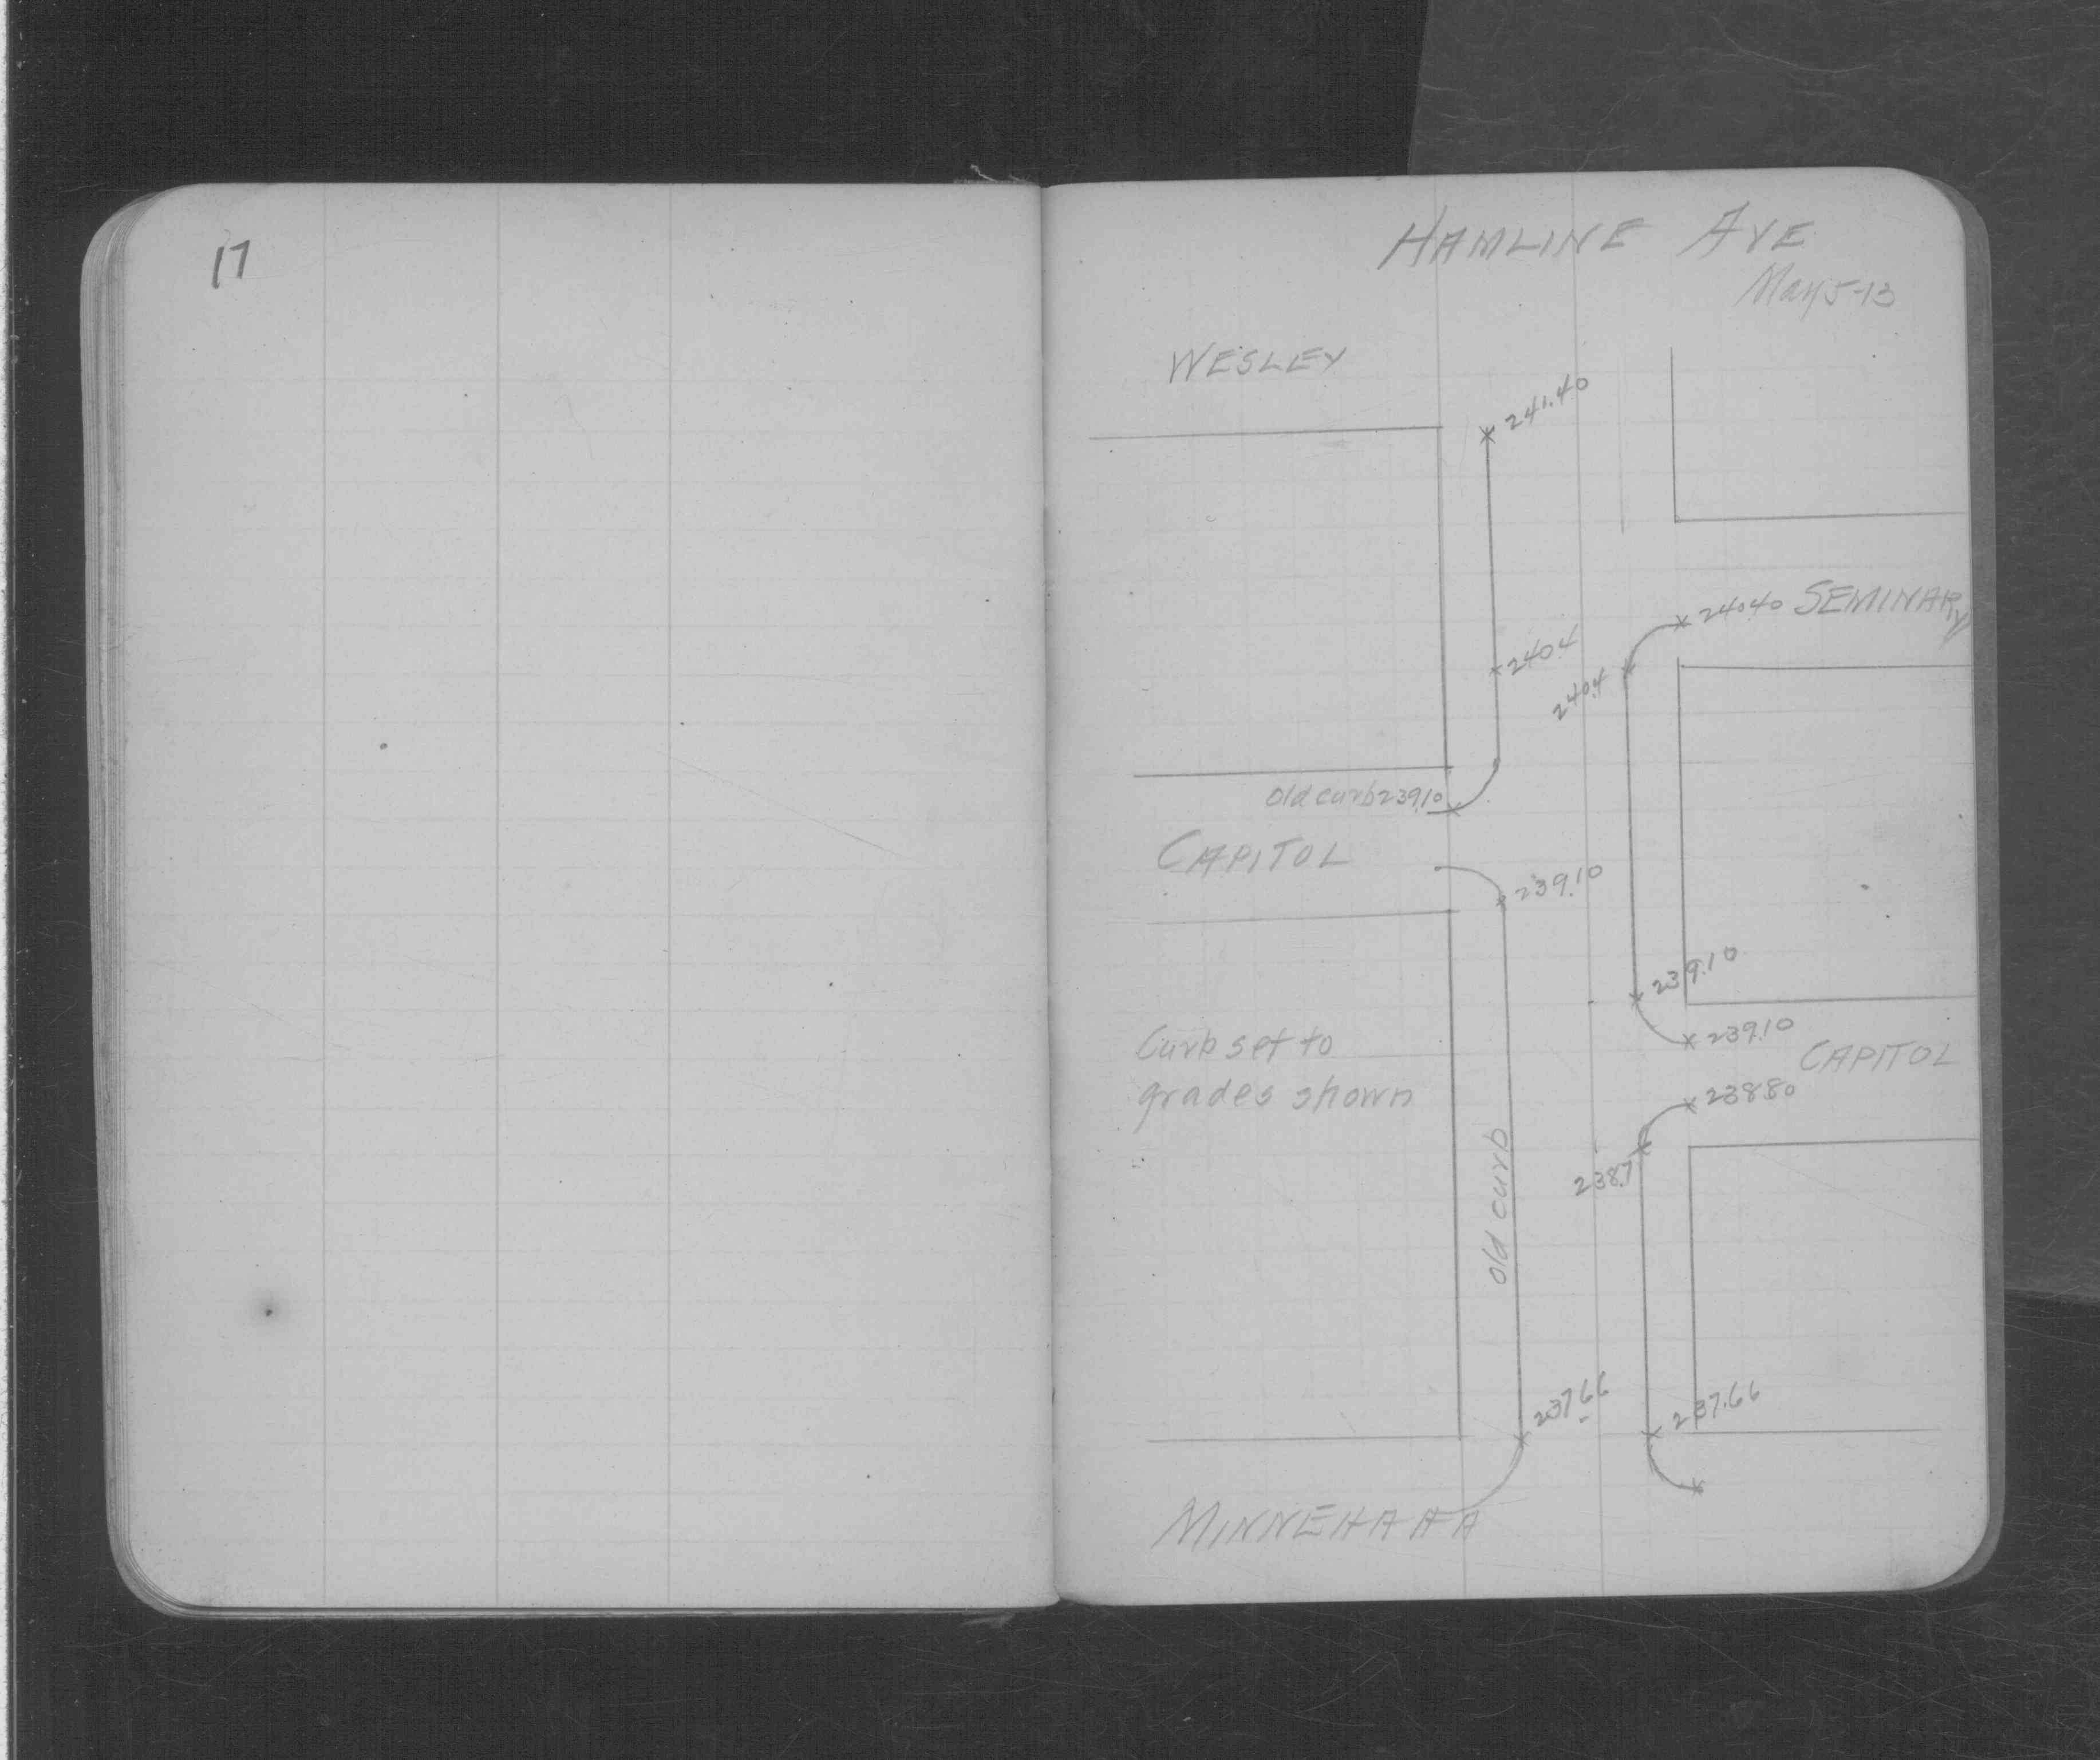 17
HAMLINE AVE
May 5-13
WESLEY
241.40
240.40 SEMINARY
240.4
240.4
old curb 239.10
CAPITOL
239.10
239.10
Curb set to
239.10
CAPITOL
grades shown
238.80
238.7
old curb
237.66
237.66
MINNEHAHA